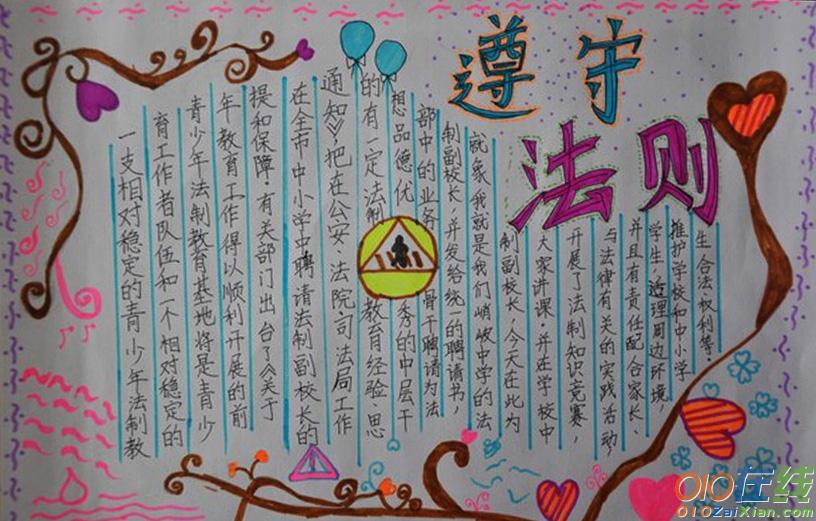 遵守
法则
一支相对稳定的青少年法制教
育工作者队伍和一个相对稳定的
青少年法制教育基地将是青少
年教育工作得以顺利开展的前
提和保障。有关部门出台了《关于
在全市中小学中聘请法制副校长的
通知》,把在公安、法院、司法局工作
的有一定法制教育经验、思
想品德优秀的中层干
部中的业务骨干聘请为法
制副校长,并发给统一的聘请书,
就象我就是我们峭岐中学的法
制副校长,今天在此为
大家讲课。并在学校中
开展了法制知识竞赛,
与法律有关的实践活动,
并且有责任配合家长、
学生,治理周边环境,
推护学校和中小学
生合法权利等。
010在线
010ZaiXian.com